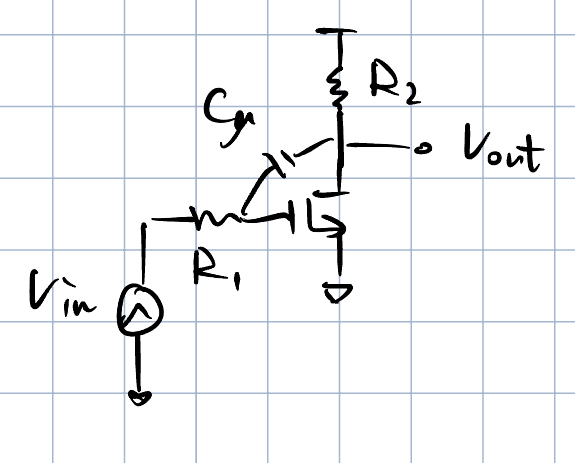 R₂
Cμ
Vout
R₁
Vin